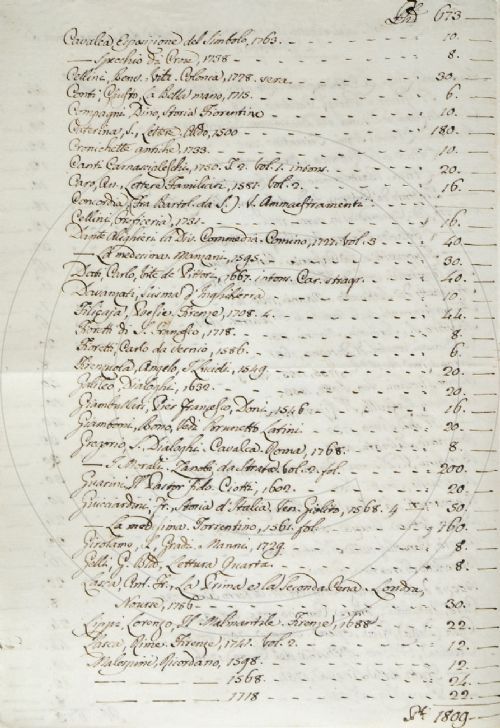 673
Cavalca Esposizione del Simbolo, 1763. 10.
— Specchio di Croce, 1738 8.
Cellini, Benv. Vita. Colonia, 1728. 30.
Conti Giusto, La Bella mano, 1715. 6.
Compagni Dino, Storia Fiorentina 10.
Caterina, S., Lettere, Aldo, 1500 180.
Cronichette antiche, 1733. 10.
Canti Carnascialeschi, 1750. T. 2. Vol. 1. intons. 20.
Caro, An., Lettere familiari, 1581. Vol. 2. 16.
Concordia (Fra Bartol. da S.) V. Ammaestramenti
Cellini, Oreficeria, 1731. 16.
Dante Alighieri la Div. Commedia. Comino, 1727. Vol. 3 40.
— La medesima. Manzani, 1595. 30.
Dati, Carlo, Vite de Pittori, 1667. intons. Car. 40.
Davanzati, Scisma d'Inghilterra 10.
Filicaja, Poesie. Firenze, 1708. 4. 44.
Fioretti di S. Francesco, 1718. 8.
Fioretti, Carlo da Vernio, 1586. 6.
Firenzuola, Angelo, I Lucidi, 1549. 20.
Galileo, Dialoghi, 1632. 20.
Giambullari, Pier Francesco, Doni, 1546 16.
Giamboni, Bono, Brunetto Latini 20.
Gregorio, S. Dialoghi. Cavalca. Roma, 1768. 8.
— I Morali, Zanobi, da Strata. Vol. 2. fol. 200.
Guarini Il Pastor Fido. Ciotti, 1602. 20.
Guicciardini, Fr. Storia d'Italia. Ven. Giolito, 1568. 4 50.
— La medesima. Torrentino, 1561 fol. 160.
Girolamo, S. Gradi. Manni, 1729. 8.
Gelli, G. Lettura Quarta. 8.
Lasca, Ant. Fr., La Prima e la Seconda Cena. Londra,
Nourse, 1756. 30.
Lippi, Lorenzo, Il Malmantile. Firenze, 1688 22.
Lasca, Rime. Firenze, 1741. Vol. 2. 12.
Malespini, Ricordano, 1598. 12.
— 1568. 24.
— 1718 22.
1809